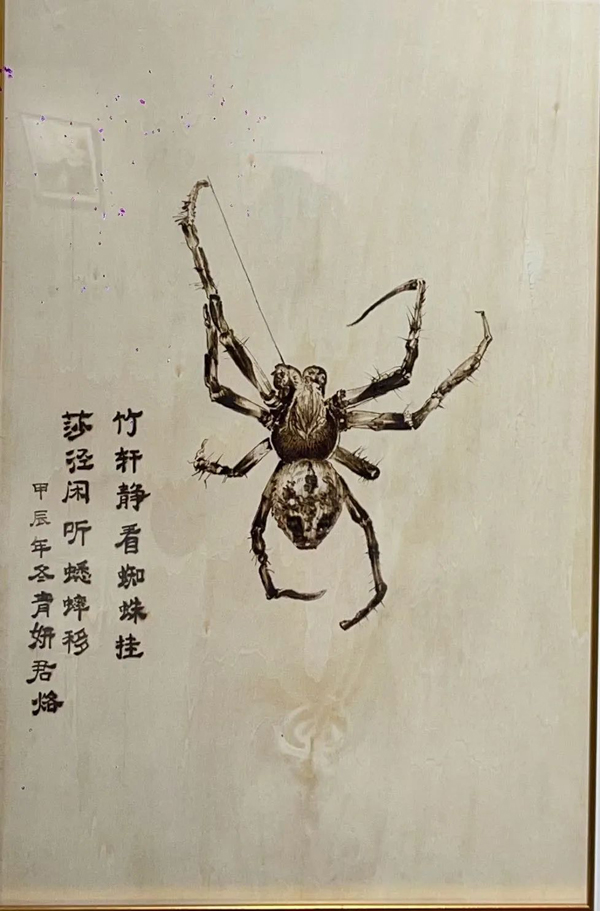 竹轩静看蜘蛛挂
莎径闲听蟋蟀移
甲辰年冬青妍君烙